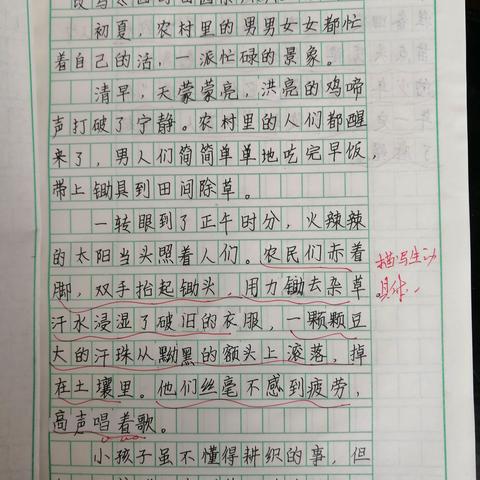 初夏,农村里的男男女女都忙
着自己的活,一派忙碌的景象。
清早,天蒙蒙亮,洪亮的鸡啼
声打破了宁静。农村里的人们都醒
来了,男人们简简单单地吃完早饭,
带上锄具到田间除草。
一转眼到了正午时分,火辣辣
的太阳当头照着人们。农民们赤着
脚,双手抬起锄头,用力锄去杂草
汗水浸湿了破旧的衣服,一颗颗豆
大的汗珠从黝黑的额头上滚落,掉
在土壤里。他们丝毫不感到疲劳,
高声唱着歌。
小孩子虽不懂得耕织的事,但
描写生动
具体。